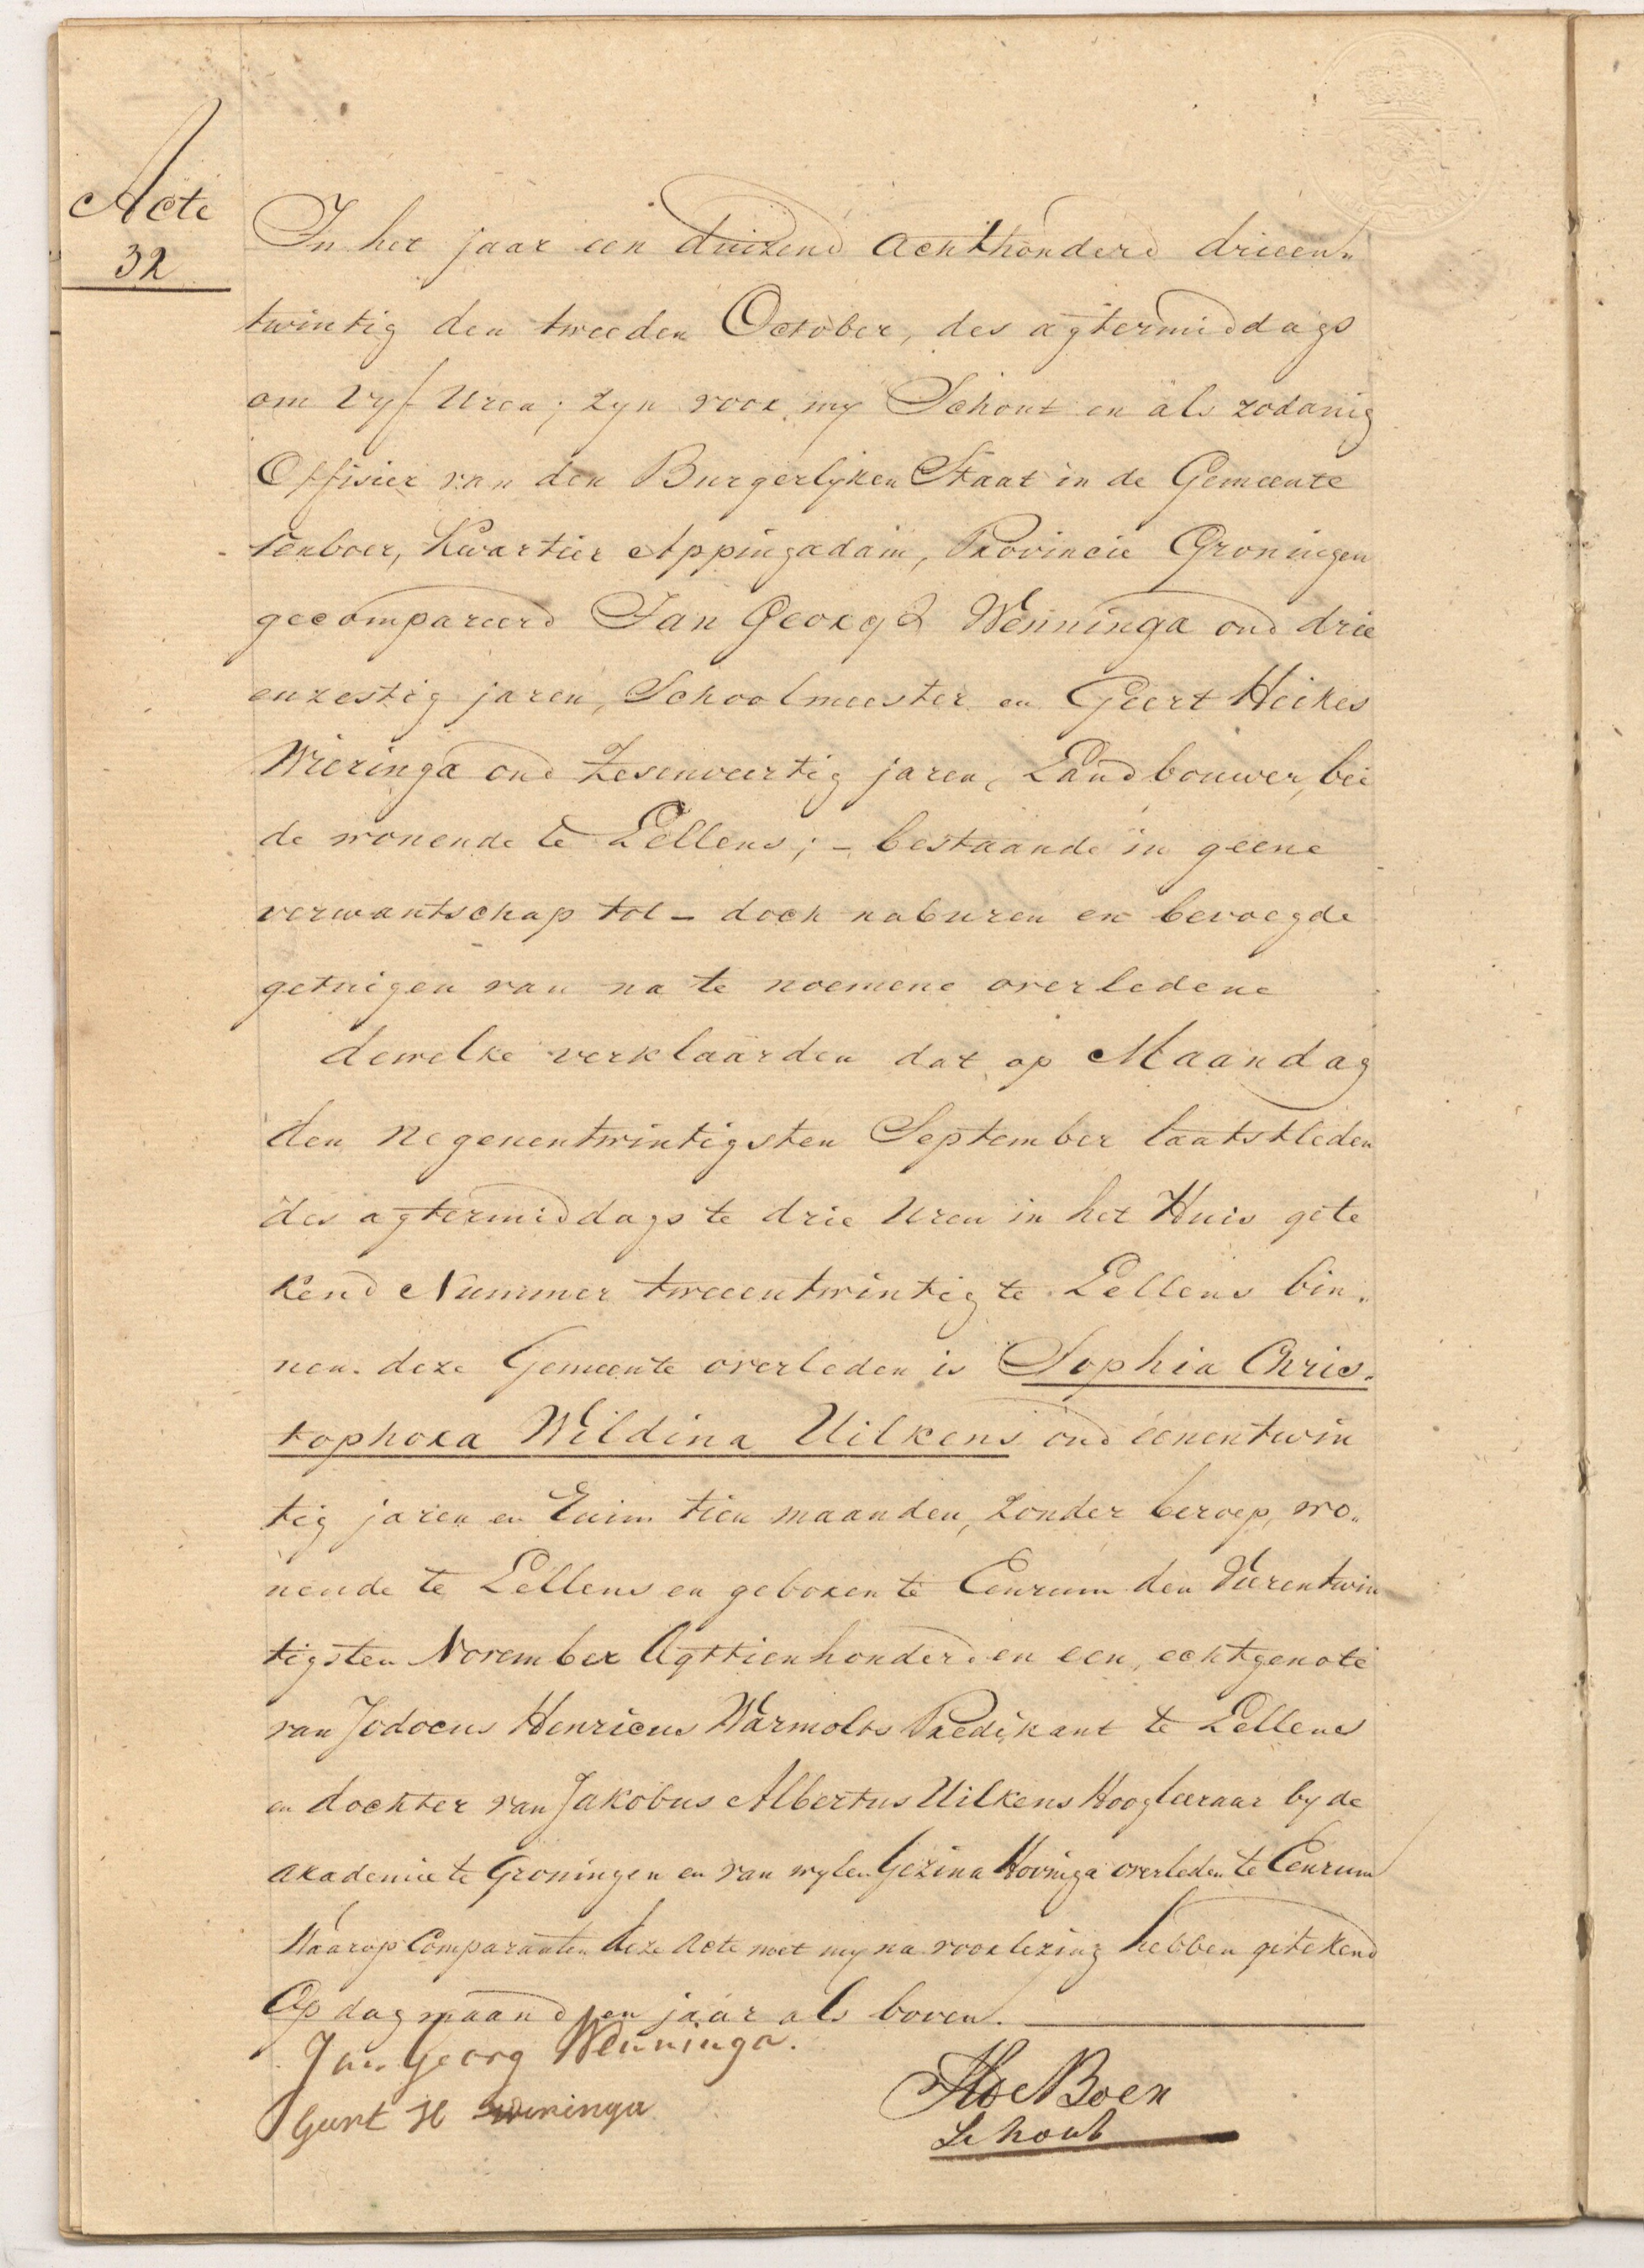 Acte
32
In het jaar een duizend achthonderd drieen„
twintig den tweeden October, des agtermiddags
om vyf Uren; zyn voor my Schout en als zodanig
Offisier van den Burgerlyken Staat in de Gemeente
Tenboer, Kwartier Appingadam, Provincie Groningen
gecompareerd Jan Georg Wenninga oud drie
enzestig jaren, Schoolmeester en Geert Heikes
Wieringa oud Zesenveertig jaren, Landbouwer, bei
de wonende te Lellens; – bestaande in geene
verwantschap tot – doch naburen en bevoegde
getuigen van na te noemene overledene
dewelke verklaarden dat op Maandag
den Negenentwintigsten September laatstleden
des agtermiddags te drie Uren in het Huis gete
kend Nummer tweeentwintig te Lellens bin„
nen deze Gemeente overleden is Sophia Chris„
tophora Wildina Uilkens oud eenentwin
tig jaren en Ruim tien maanden, Zonder beroep, wo„
nende te Lellens en geboren te Eenrum den Vierentwin
tigsten November Agttienhonderd en een, echtgenote
van Jodocus Henricus Warmolts Predikant te Lellens
en dochter van Jakobus Albertus Uilkens Hoogleeraar by de
akademie te Groningen en van wylen Gezina Hovinga overleden te Eenrum
Waarop Comparanten deze Acte met my na voorlezing hebben getekend
Op dag maand en jaar als boven.
Jan Georg Wenninga.
Geert H Wieringa
Boer
Schout